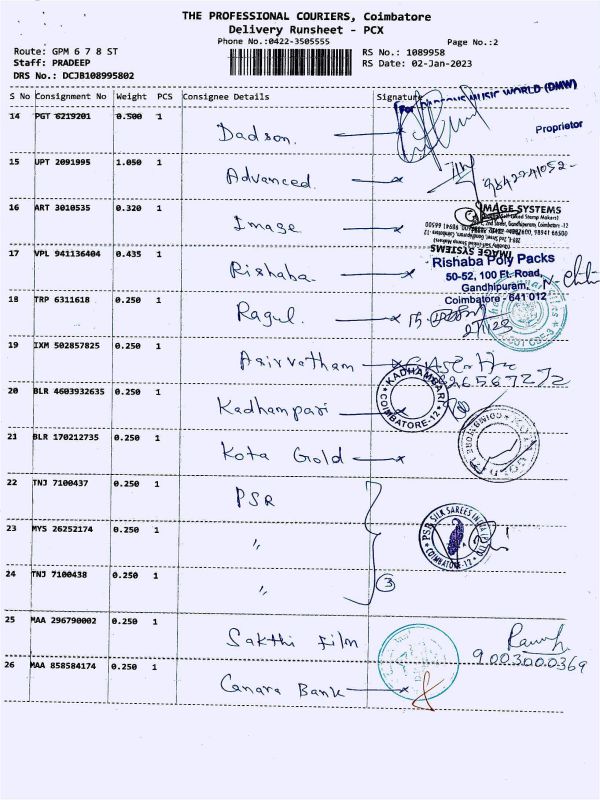 THE PROFESSIONAL COURIERS, Coimbatore
Delivery Runsheet - PCX
Phone No.:0422-3505555
Page No.:2
Route: GPM 6 7 8 ST
RS No.: 1089958
Staff: PRADEEP
RS Date: 02-Jan-2023
DRS No.: DCJB108995802
S No Consignment No Weight PCS Consignee Details Signature
For MUSIC WORLD (DMW)
14 PGT 6219201 0.500 1 Dadson.
Proprietor
15 UPT 2091995 1.050 1 Advanced.
16 ART 3010535 0.320 1 Image
IMAGE SYSTEMS
17 VPL 941136404 0.435 1 Rishaba.
IMAGE SYSTEMS
Rishaba Poly Packs
50-52, 100 Ft. Road,
Gandhipuram,
Coimbatore - 641 012
18 TRP 6311618 0.250 1 Ragul.
19 IXM 502857825 0.250 1 Asirvatham
20 BLR 4603932635 0.250 1 Kadhampari
KADHAMBARI
COIMBATORE-12
21 BLR 170212735 0.250 1 Kota Gold
22 TNJ 7100437 0.250 1 PSR
23 MYS 26252174 0.250 1 "
PSR SILK SAREES INDIA (P) LTD
COIMBATORE-12
24 TNJ 7100438 0.250 1 "
3
25 MAA 296790002 0.250 1 Sakthi Film
9003000369
26 MAA 858584174 0.250 1 Canara Bank